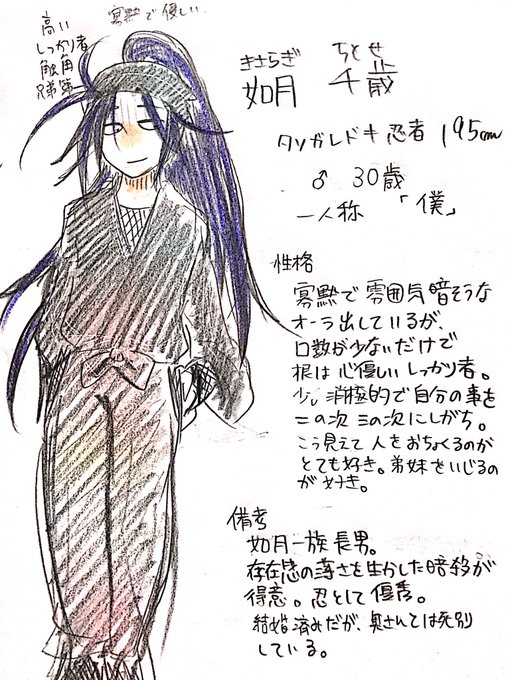 寡黙で優しい
高い
しっかり者
触角
兄弟
きさらぎ ちとせ
如月 千歳
タソガレドキ忍者 195cm
♂ 30歳
一人称 「僕」
性格
寡黙で雰囲気暗そうな
オーラ出しているが、
口数が少ないだけで
根は心優しいしっかり者。
少し消極的で自分の事を
二の次三の次にしがち。
こう見えて人をおちょくるのが
とても好き。弟妹をいじるの
が好き。
備考
如月一族長男。
存在感の薄さを生かした暗殺が
得意。忍として優秀。
結婚済みだが、奥さんとは死別
している。